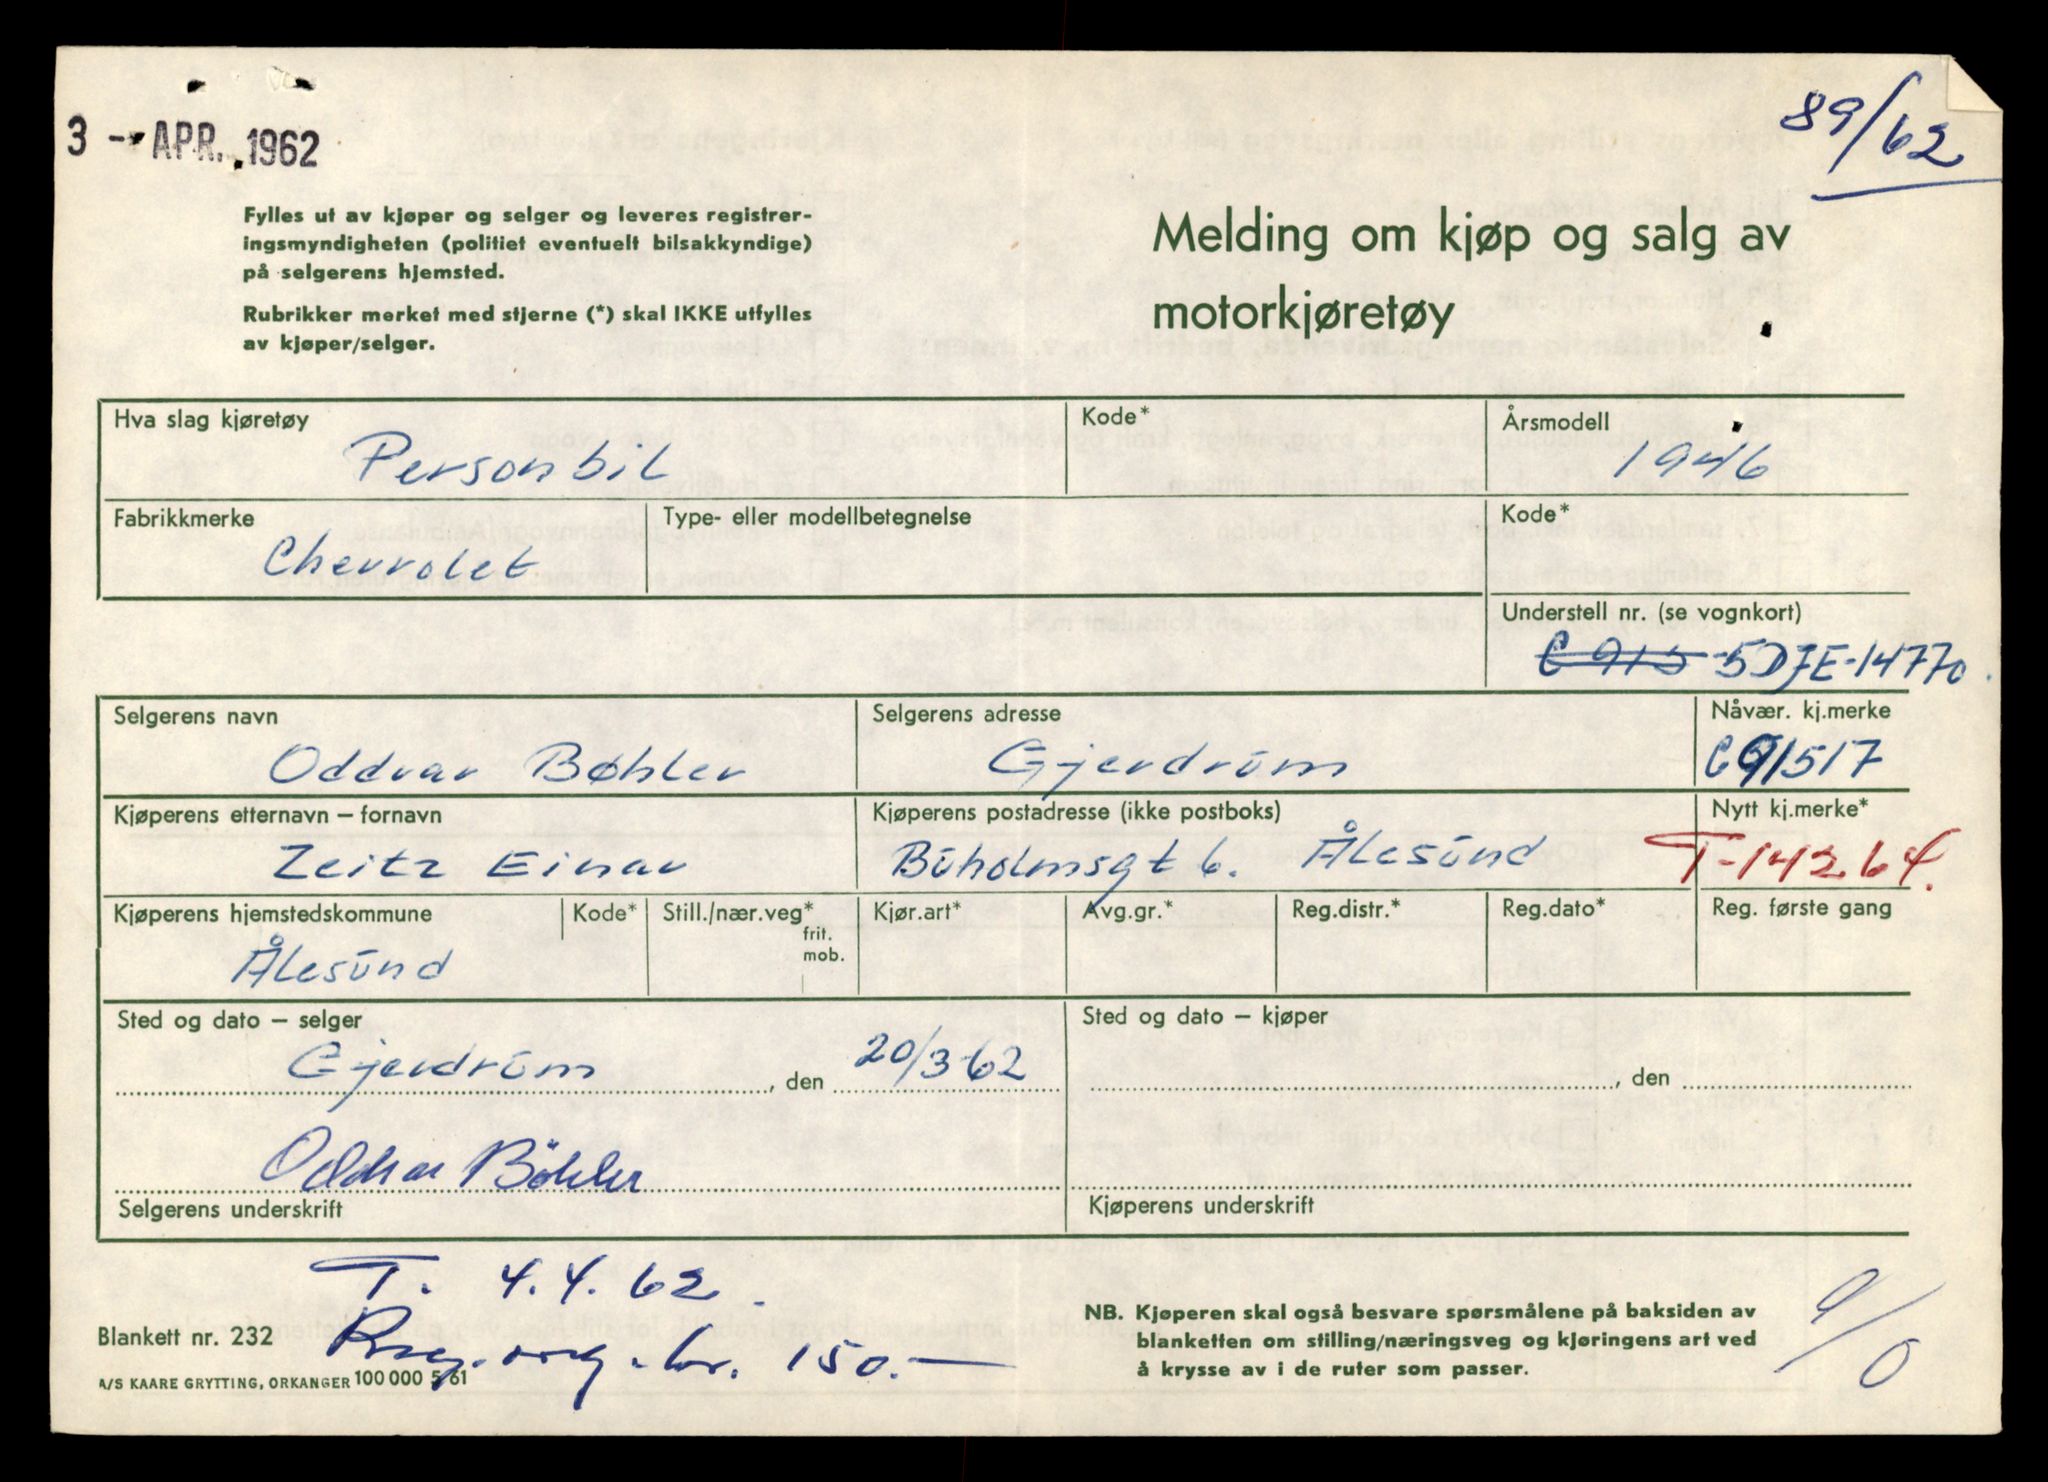 3 - APR. 1962
89/62
Fylles ut av kjøper og selger og leveres registrer-
ingsmyndigheten (politiet eventuelt bilsakkyndige)
på selgerens hjemsted.
Rubrikker merket med stjerne (*) skal IKKE utfylles
av kjøper/selger.
Melding om kjøp og salg av
motorkjøretøy
Hva slag kjøretøy
Kode*
Årsmodell
Personbil
1946
Fabrikkmerke
Type- eller modellbetegnelse
Kode*
Chevrolet
Understell nr. (se vognkort)
C 915 5DJE-14770.
Selgerens navn
Selgerens adresse
Nåvær. kj.merke
Oddvar Bøhler
Gjerdrum
C91517
Kjøperens etternavn – fornavn
Kjøperens postadresse (ikke postboks)
Nytt kj.merke*
Zeitz Einar
Buholmsgt 6. Ålesund
T-14264.
Kjøperens hjemstedskommune
Kode*
Still./nær.veg*
frit.
mob.
Kjør.art*
Avg.gr.*
Reg.distr.*
Reg.dato*
Reg. første gang
Ålesund
Sted og dato – selger
Sted og dato – kjøper
Gjerdrum, den 20/3-62
, den
Oddvar Böhler
Selgerens underskrift
Kjøperens underskrift
T. 4.4.62.
avg. kr. 150.—
Blankett nr. 232
A/S KAARE GRYTTING, ORKANGER 100 000 5 61
NB. Kjøperen skal også besvare spørsmålene på baksiden av
blanketten om stilling/næringsveg og kjøringens art ved
å krysse av i de ruter som passer.
9/0